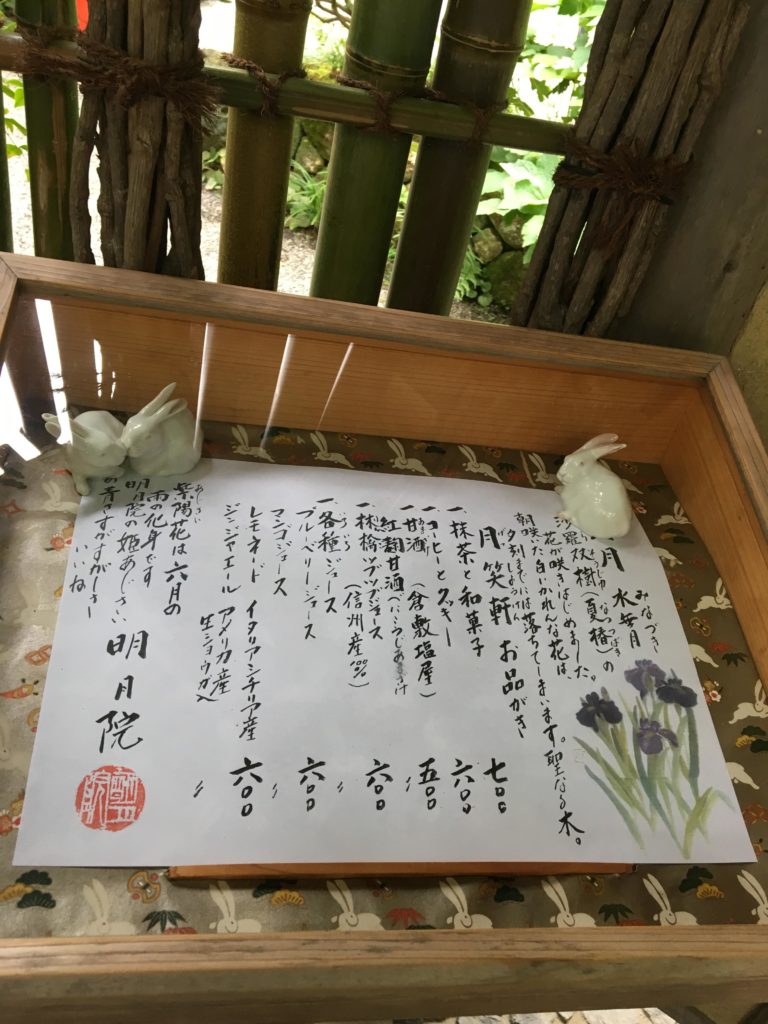 月 水無月 みなづき
沙羅双樹(夏椿)の
なつつばき
花が咲きはじめました。
朝咲いた白いかれんな花は、
夕刻までには落ちてしまいます。聖なる木。
月笑軒 お品がき
げっしょうけん
一、抹茶と和菓子 七〇〇
一、コーヒーとクッキー 六〇〇
一、甘酒 (倉敷塩屋) 五〇〇
紅麹甘酒 (べにこうじあまざけ) 〃
一、林檎ツブツブジュース (信州産100%) 六〇〇
一、各種ジュース 〃
ブルーベリージュース 六〇〇
マンゴジュース 〃
レモネード イタリアシチリア産 六〇〇
ジンジャエール アメリカ産 生ショウガ入 〃
あじさい
紫陽花は六月の
雨の化身です
明月院の姫あじさい
の青さすがすがしさ
いいね
明月院